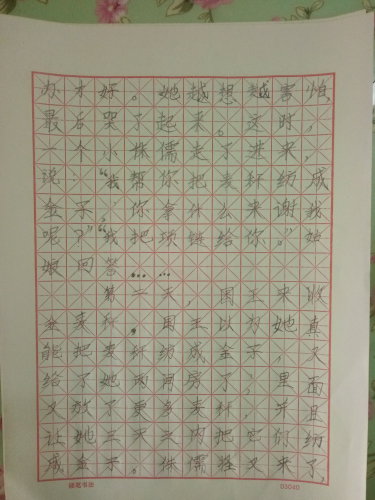 办才好。她越想越害怕,
最后哭了起来。这时,
一个小侏儒走了进来,
说:“我帮你把麦秆纺成
金子,你拿什么来谢我
呢?”“我把项链给你。”姑
娘回答……
第二天,国王来收
麦秆,国王以为她真
能把麦秆纺成金子,又
给了她两间房子,里面
又放了更多麦秆,并且
让她三天之内把它们纺
成金子。侏儒又来了,
硬笔书法
03040